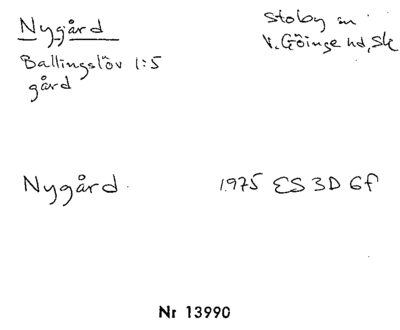 Nygård
Stoby sn
V. Göinge hd, Sk
Ballingslöv 1:5
gård
Nygård
1975 ES 3D 6f
Nr 13990